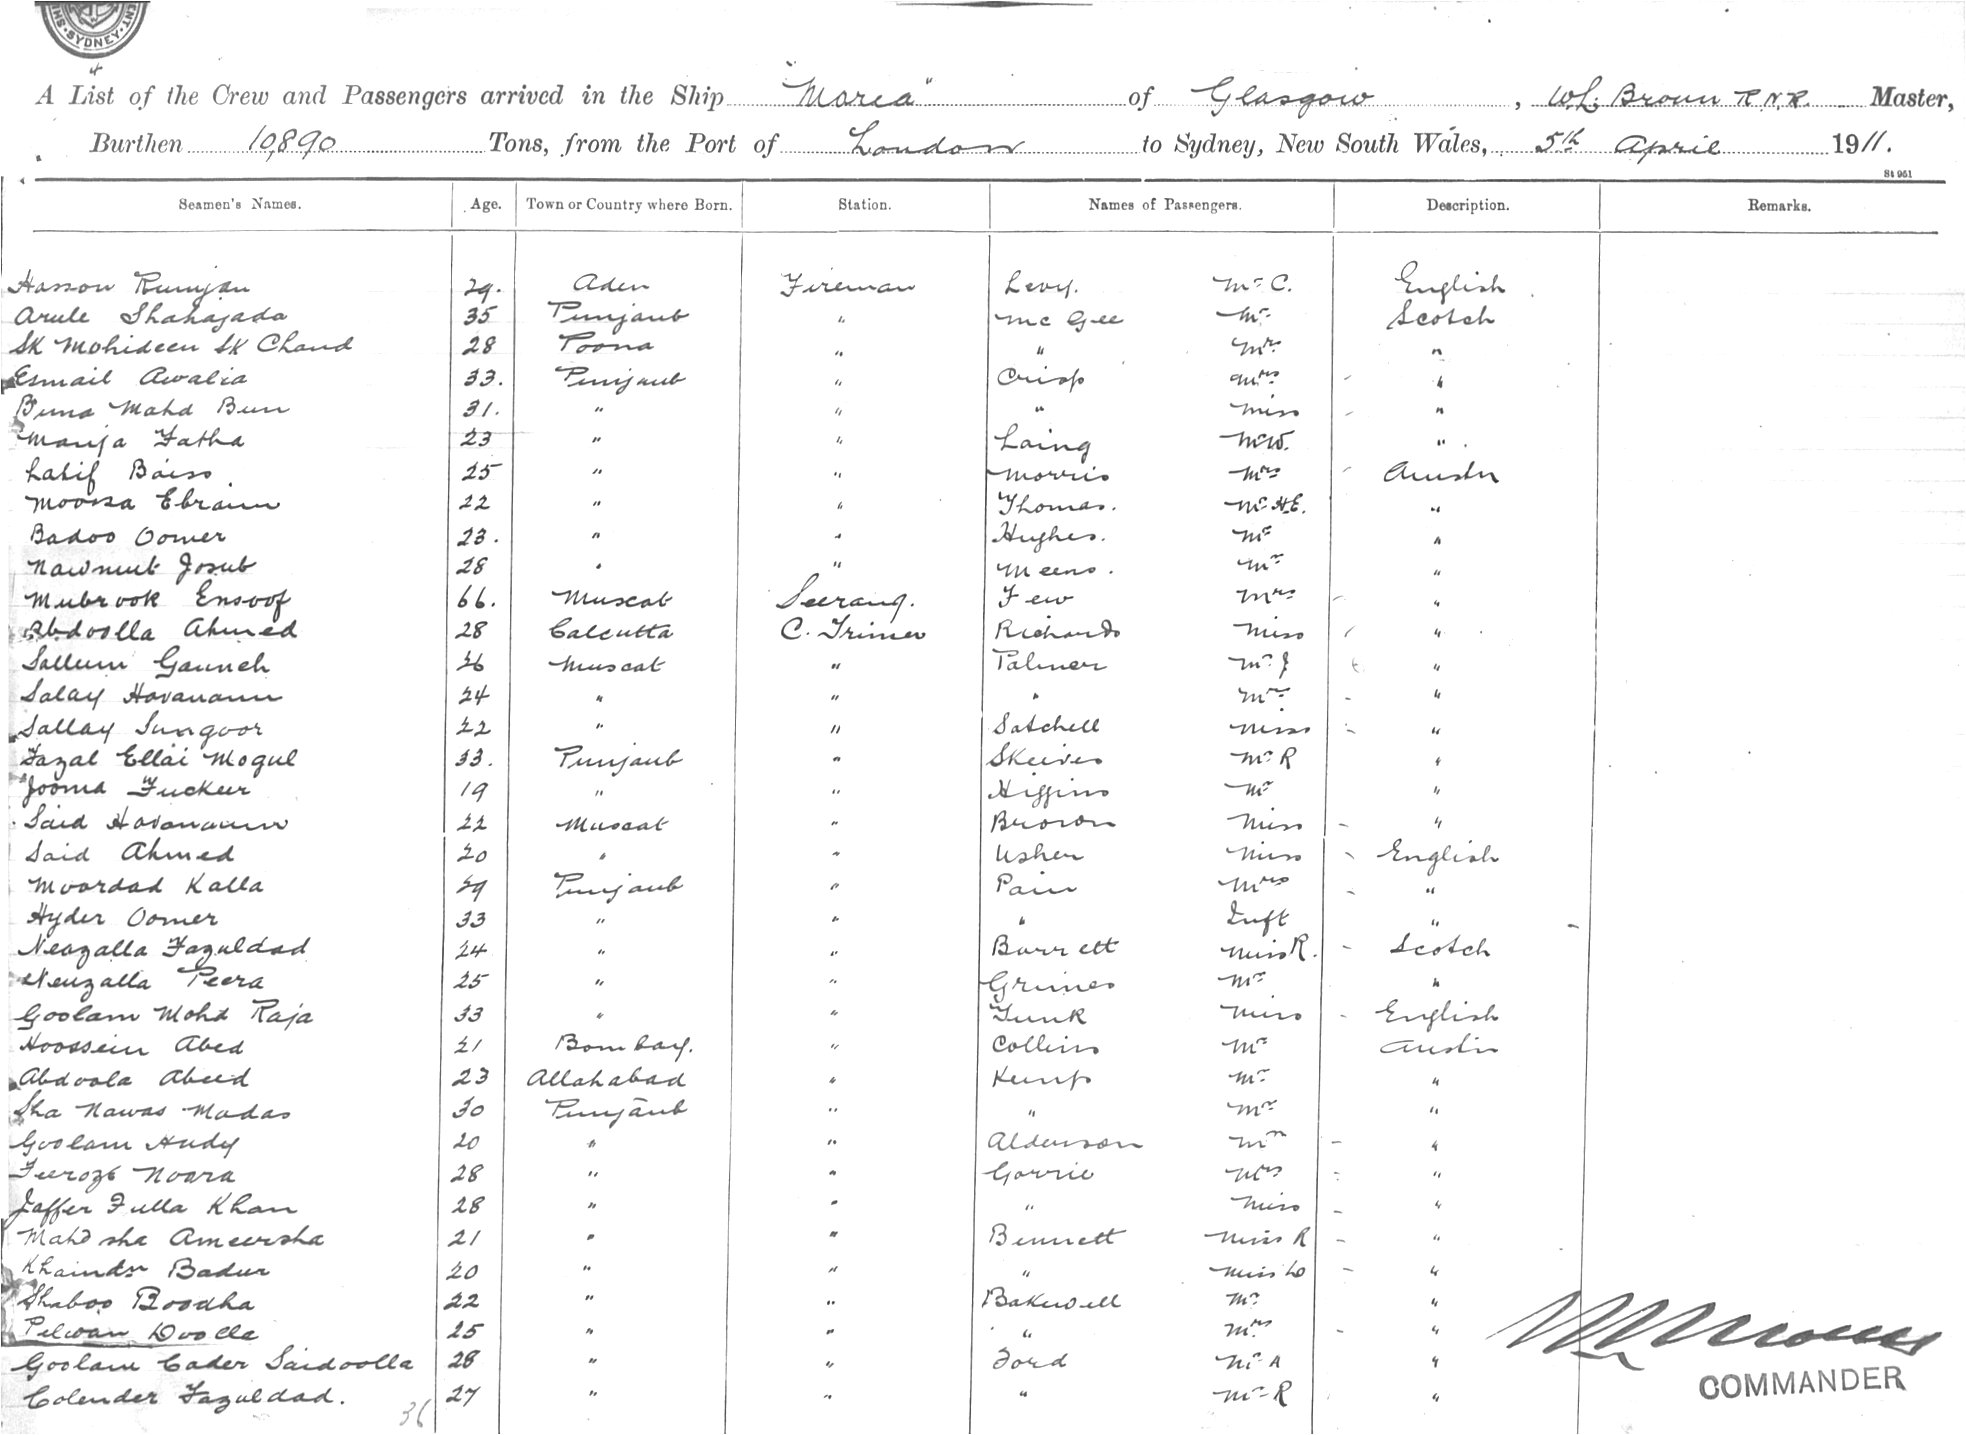 SYDNEY
A List of the Crew and Passengers arrived in the Ship "Morea" of Glasgow, W.L. Broun R.N.R. Master,
Burthen 10,890 Tons, from the Port of London to Sydney, New South Wales, 5th April 1911.
St 961
Seamen's Names. Age. Town or Country where Born. Station. Names of Passengers. Description. Remarks.
Hasson Rumjan 29. Aden Fireman Levy. Mr C. English
Arule Shahajada 35 Punjaub " Mc Gee Mr Scotch
SK Mohideen SK Chand 28 Poona " " Mrs "
Esmail Awalia 33. Punjaub " Crisp Mrs "
Buna Mahd Bun 31. " " " Miss "
Mauja Fatha 23 " " Laing Mr W. "
Latif Baiso 25 " " Morris Mrs Austn
Moossa Ebraim 22 " " Thomas. Mr H.E. "
Badoo Oomer 23. " " Hughes. Mr "
Nawmut Josub 28 " " Meens. Mr "
Mubrook Ensoof 66. Muscat Seerang. Few Mrs "
Abdoolla Ahmed 28 Calcutta C. Trimer Richards Miss "
Sallum Gaunch 26 Muscat " Palmer Mr J "
Salay Hovanann 24 " " " Mrs "
Sallay Sungoor 22 " " Satchell Miss "
Fazal Ellai Mogul 33. Punjaub " Skeives Mr R "
Jooma Fuckeer 19 " " Higgins Mr "
Said Hovanann 22 Muscat " Broron Miss "
Said Ahmed 20 " " Usher Miss English
Moordad Kalla 29 Punjaub " Pain Mrs "
Hyder Oomer 33 " " " Inft "
Neazalla Fazuldad 24 " " Barrett Miss R. Scotch
Neuzalla Peera 25 " " Grimes Mr "
Goolam Mohd Raja 33 " " Funk Miss English
Hoossein Abed 21 Bombay. " Collins Mr Austn
Abdoola Abeed 23 Allahabad " Kemp Mr "
Sha Nawas Madas 30 Punjaub " " Mr "
Goolam Hudy 20 " " Alderson Mrs "
Feeroze Noora 28 " " Gorrie Mrs "
Jaffer Fulla Khan 28 " " " Miss "
Mahd sha Ameersha 21 " " Bennett Miss R "
Badur 20 " " " Miss "
Shaboo Boodha 22 " " Bakewell Mr "
Pelwan Doolla 25 " " " Mrs "
Goolam Cader Saidoolla 28 " " Ford Mr A "
Colender Fazuldad. 27 " " " Mr R "
36
COMMANDER